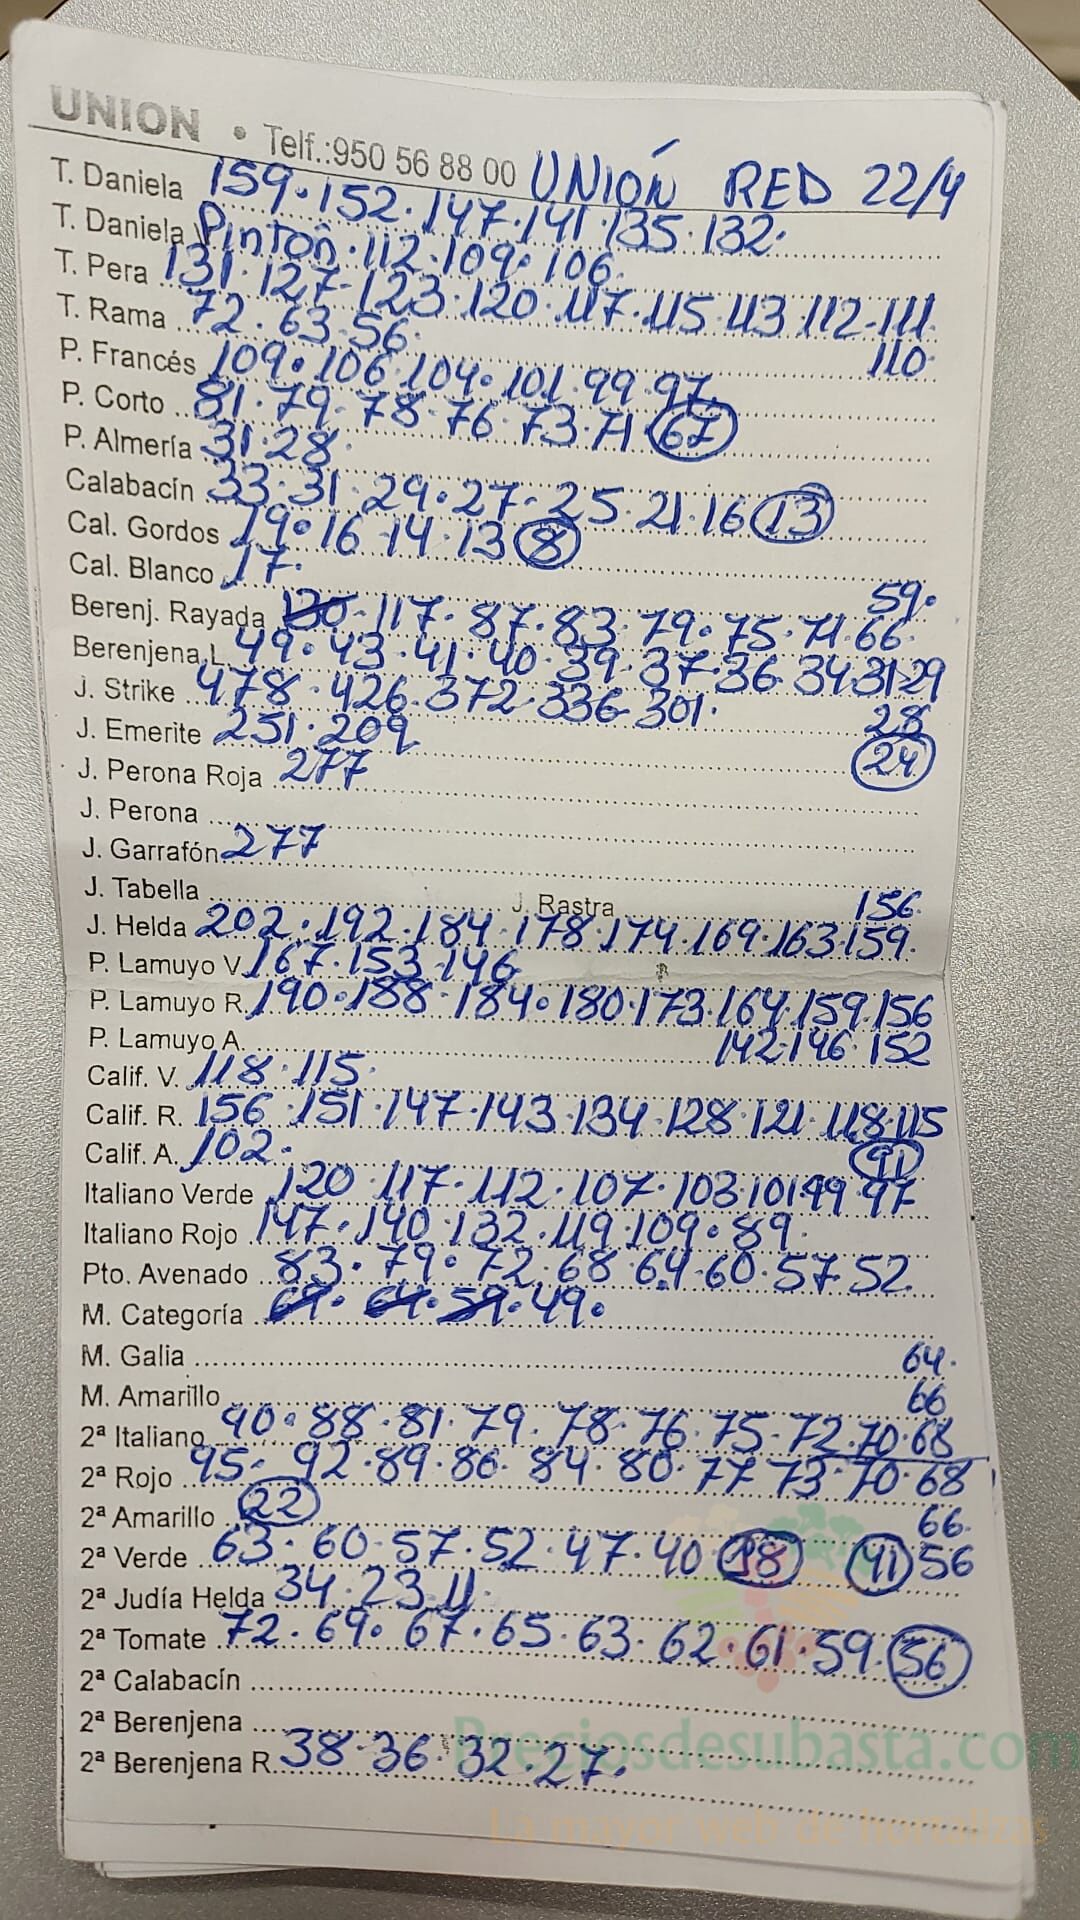 UNION • Telf.:950 56 88 00 UNIÓN RED 22/4
T. Daniela 159·152·147·141·135·132·
T. Daniela Pintón·112·109·106·
T. Pera 131·127·123·120·117·115·113·112·111
T. Rama 72·63·56· 110·
P. Francés 109·106·104·101·99·97
P. Corto 81·79·78·76·73·71 67
P. Almería 31·28·
Calabacín 33·31·29·27·25·21·16 13
Cal. Gordos 19·16·14·13 8
Cal. Blanco 17· 59·
Berenj. Rayada 130·117·87·83·79·75·71·66·
Berenjena L 49·43·41·40·39·37·36·34·31·29
J. Strike 478·426·372·336·301· 28
J. Emerite 251·209 24
J. Perona Roja 277
J. Perona
J. Garrafón 277
J. Tabella J. Rastra 156·
J. Helda 202·192·184·178·174·169·163·159·
P. Lamuyo V. 167·153·146
P. Lamuyo R. 190·188·184·180·173·164·159·156
P. Lamuyo A. 142·146·152
Calif. V. 118·115·
Calif. R. 156·151·147·143·134·128·121·118·115
Calif. A. 102· 91
Italiano Verde 120·117·112·107·103·101·99·97
Italiano Rojo 147·140·132·119·109·89·
Pto. Avenado 83·79·72·68·64·60·57·52
M. Categoría 69·64·59·49·
M. Galia 64·
M. Amarillo 66
2ª Italiano 90·88·81·79·78·76·75·72·70·68
2ª Rojo 95·92·89·86·84·80·77·73·70·68
2ª Amarillo 22 66·
2ª Verde 63·60·57·52·47·40 18 41 56
2ª Judía Helda 34·23·11·
2ª Tomate 72·69·67·65·63·62·61·59· 56
2ª Calabacín
2ª Berenjena
2ª Berenjena R. 38·36·32·27·
Preciosdesubasta.com
La mayor web de hortalizas